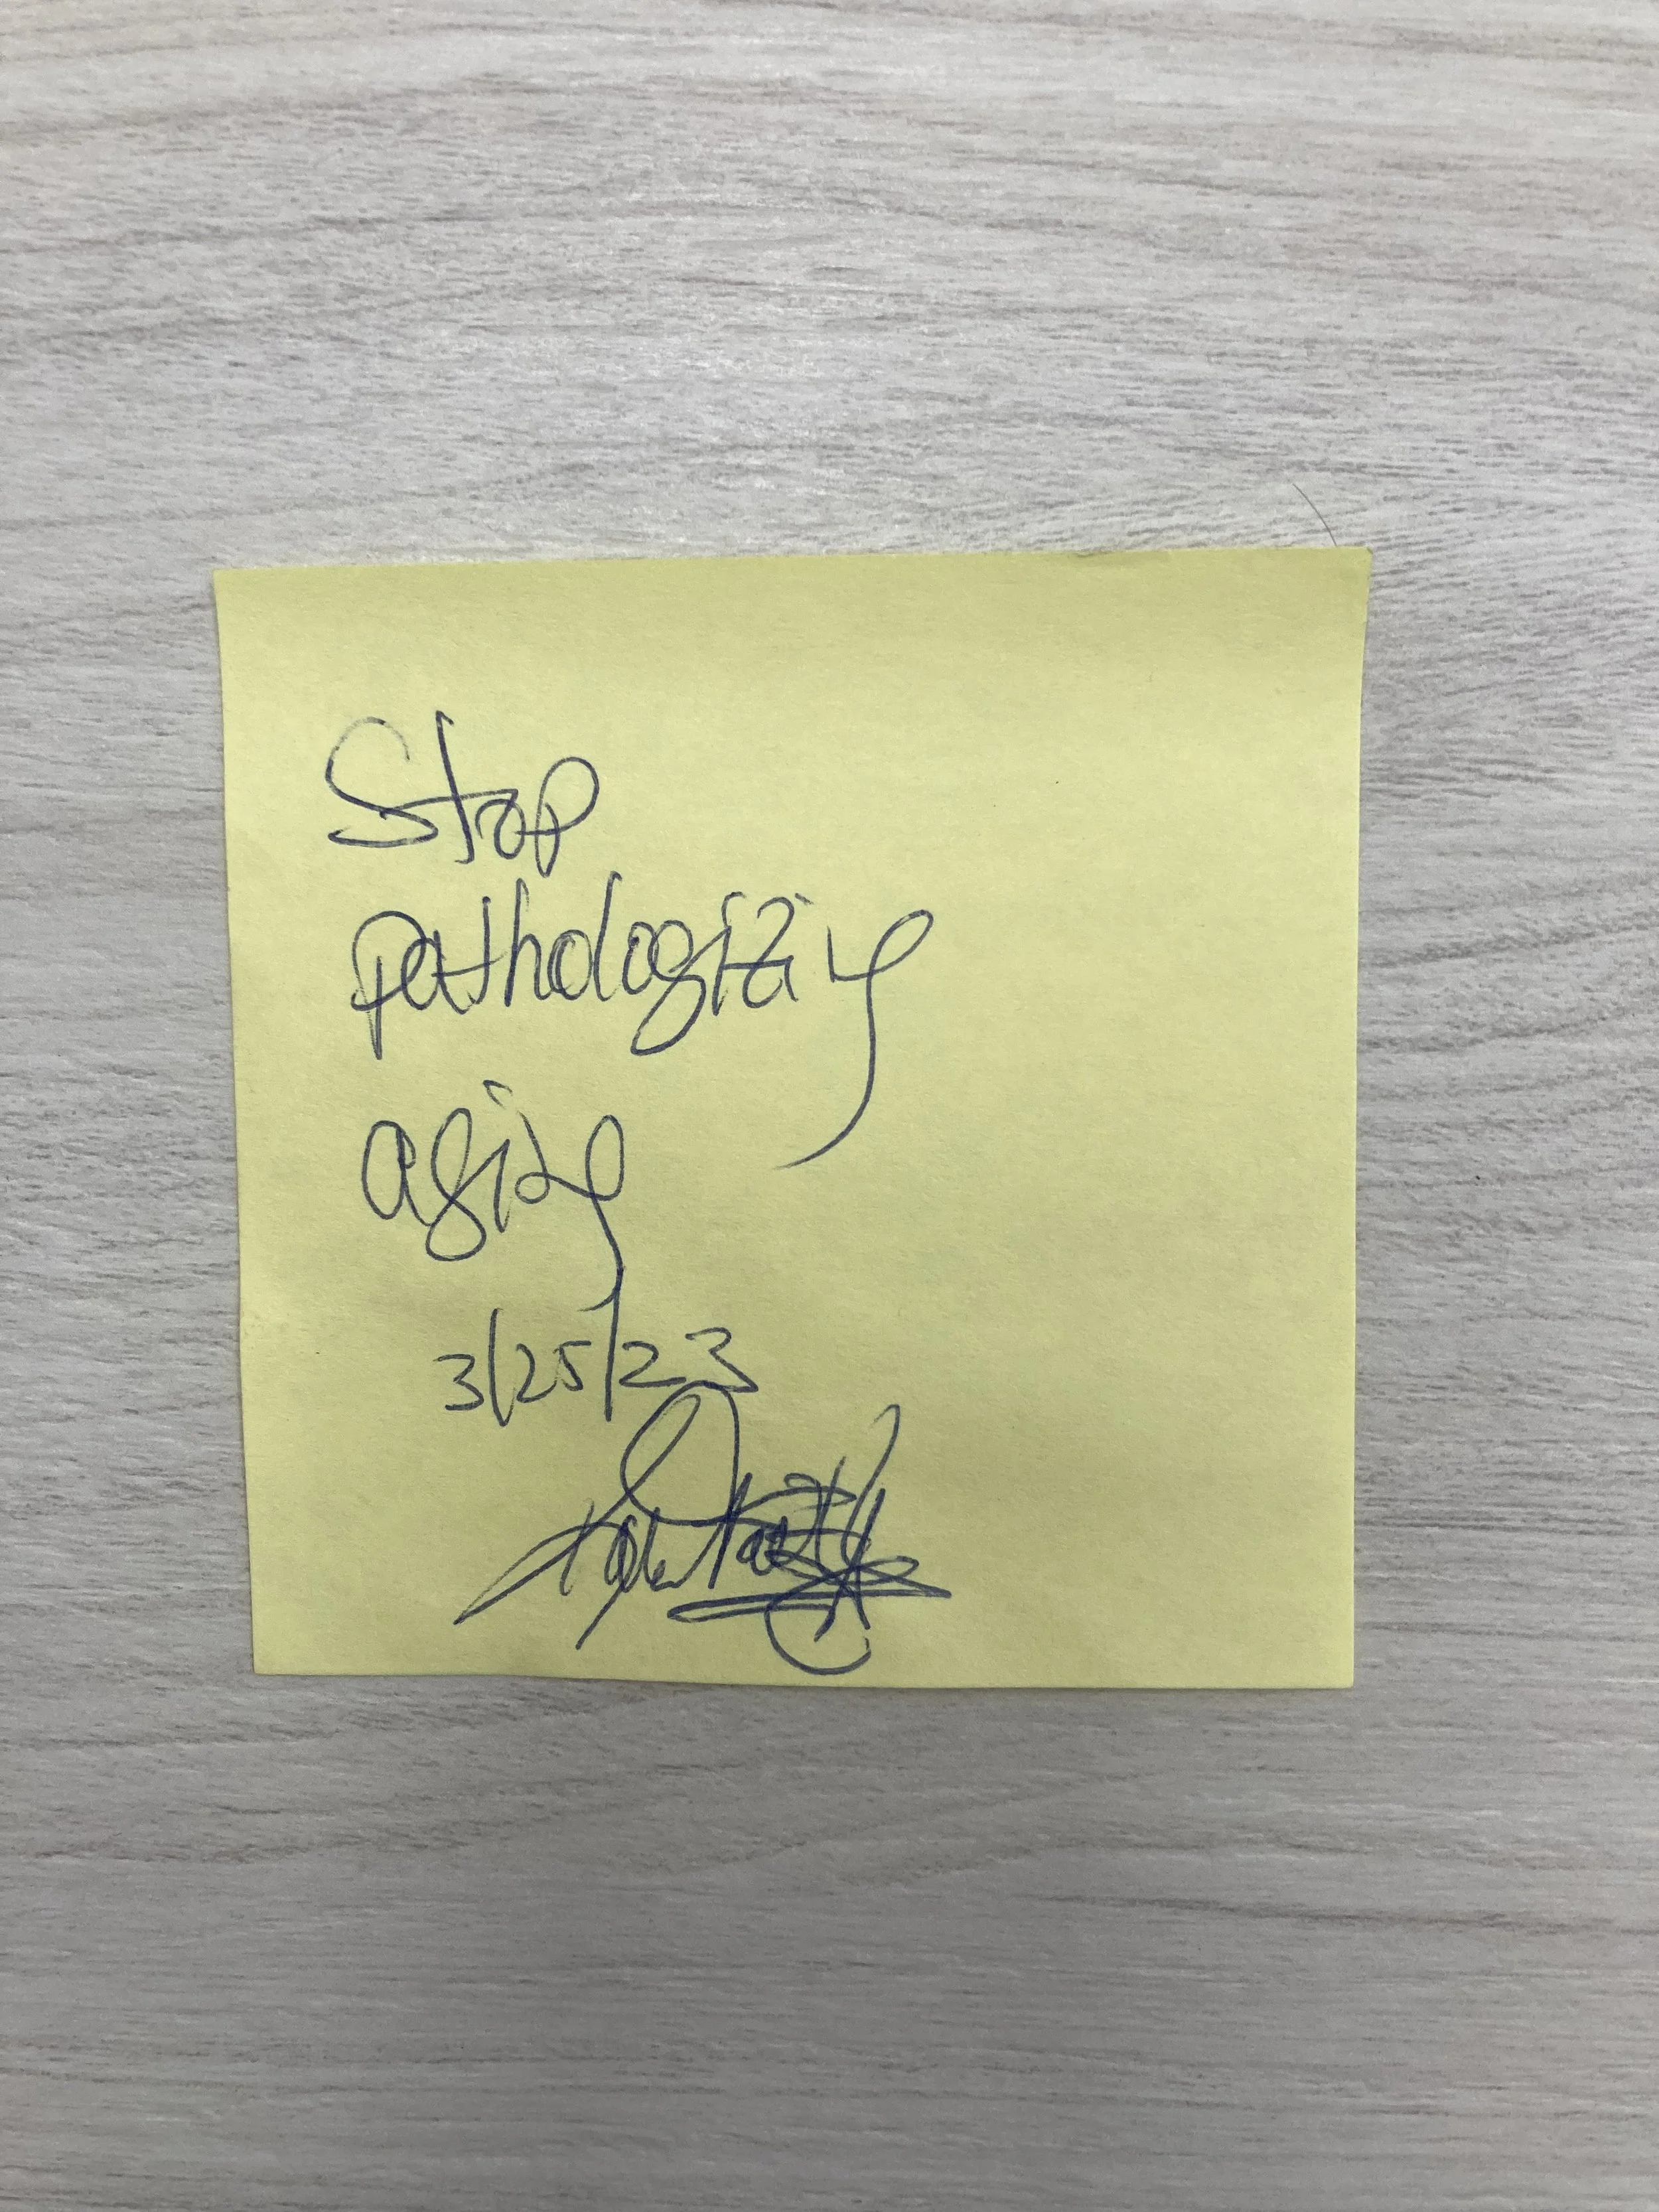 Stop
pathologizing
aging
3/25/23